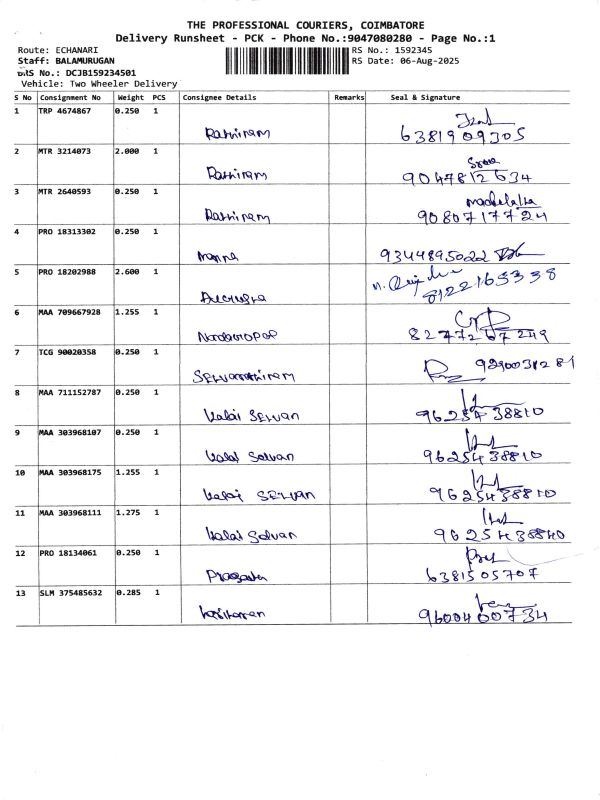 THE PROFESSIONAL COURIERS, COIMBATORE
Delivery Runsheet - PCK - Phone No.:9047080280 - Page No.:1
Route: ECHANARI RS No.: 1592345
Staff: BALAMURUGAN RS Date: 06-Aug-2025
DRS No.: DCJB159234501
Vehicle: Two Wheeler Delivery
S No Consignment No Weight PCS Consignee Details Remarks Seal & Signature
1 TRP 4674867 0.250 1
Rathiram 6381909305
2 MTR 3214073 2.000 1
Rathiram 9047812634
3 MTR 2640593 0.250 1
Rathiram 9080717724
4 PRO 18313302 0.250 1
9344895022
5 PRO 18202988 2.600 1
8122165338
6 MAA 709667928 1.255 1
8277267249
7 TCG 90020358 0.250 1
Selvarathiram
8 MAA 711152787 0.250 1
Kalai Selvan 9625438810
9 MAA 303968107 0.250 1
Kalai Selvan 9625438810
10 MAA 303968175 1.255 1
Kalai Selvan 9625438810
11 MAA 303968111 1.275 1
Kalai Selvan
12 PRO 18134061 0.250 1
6381505707
13 SLM 375485632 0.285 1
9600400734